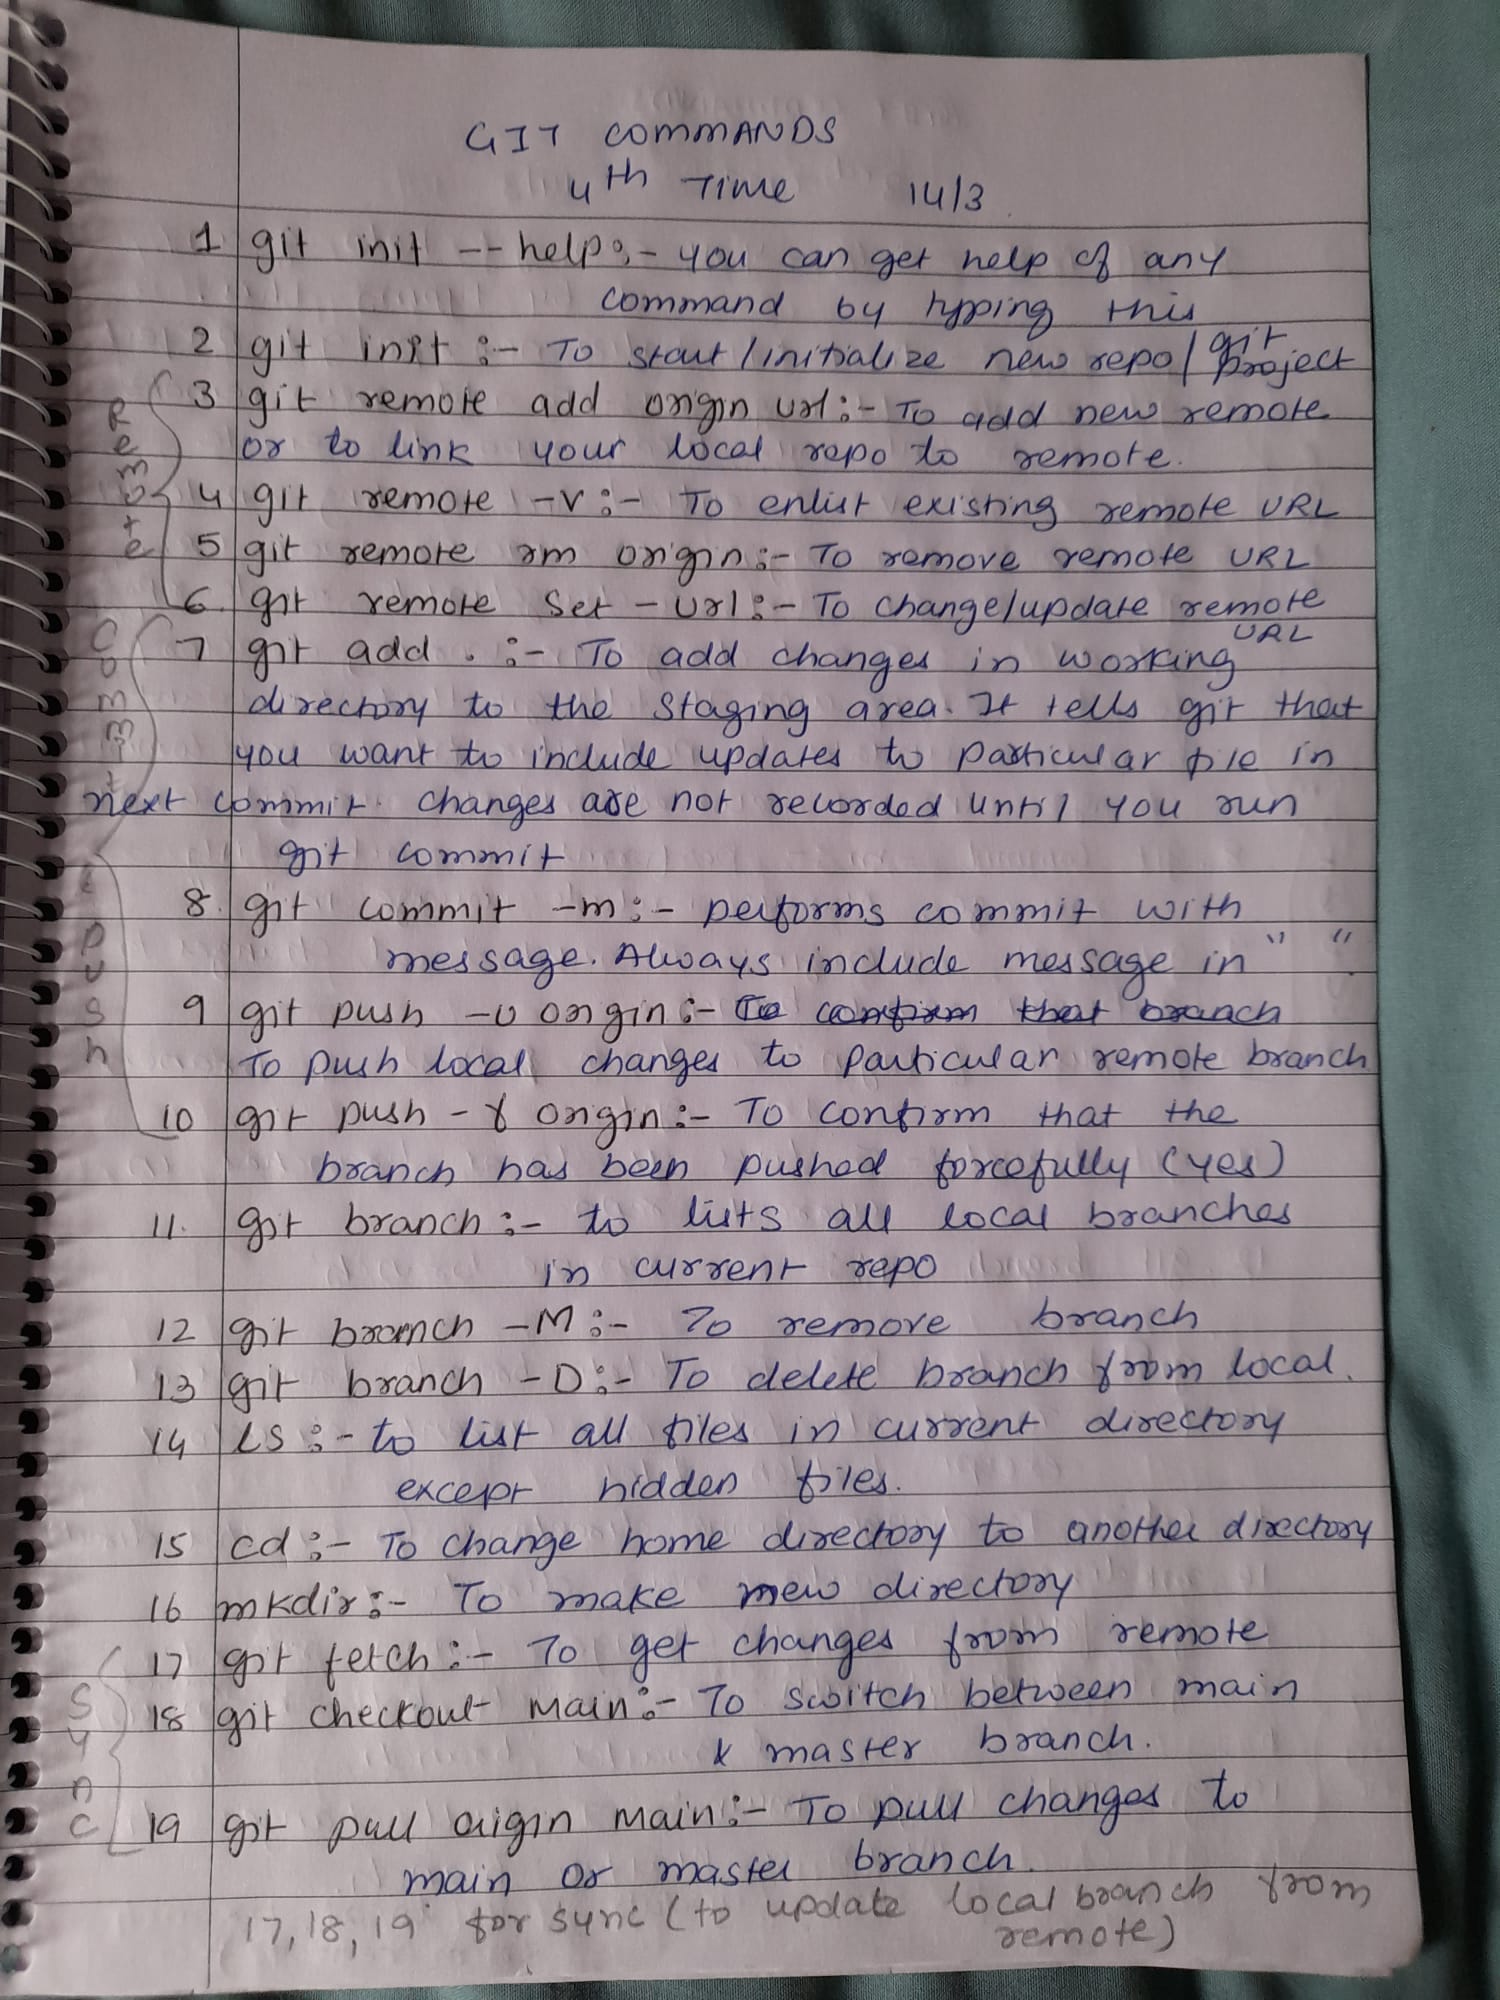 GIT COMMANDS
4th Time 14/3
1 git init --help:- you can get help of any
command by typing this
2 git init :- To start/initialize new repo/ git project
3 git remote add origin url:- To add new remote
or to link your local repo to remote.
4 git remote -v:- To enlist existing remote URL
5 git remote rm origin:- To remove remote URL
6. git remote set-url:- To change/update remote
URL
7 git add . :- To add changes in working
directory to the staging area. It tells git that
you want to include updates to particular file in
next commit. changes are not recorded until you run
git commit
8. git commit -m:- performs commit with
message. Always include message in " ".
9 git push -u origin:- To confirm that branch
To push local changes to particular remote branch
10 git push -f origin:- To confirm that the
branch has been pushed forcefully (yes)
11. git branch:- to lists all local branches
in current repo
12 git branch -M:- To remove branch
13 git branch -D:- To delete branch from local.
14 LS:- to list all files in current directory
except hidden files.
15 cd:- To change home directory to another directory
16 mkdir:- To make new directory
17 git fetch:- To get changes from remote
18 git checkout main:- To switch between main
& master branch.
19 git pull origin main:- To pull changes to
main or master branch.
17, 18, 19 for sync (to update local branch from
remote)
Remote
Commit
&push
Sync